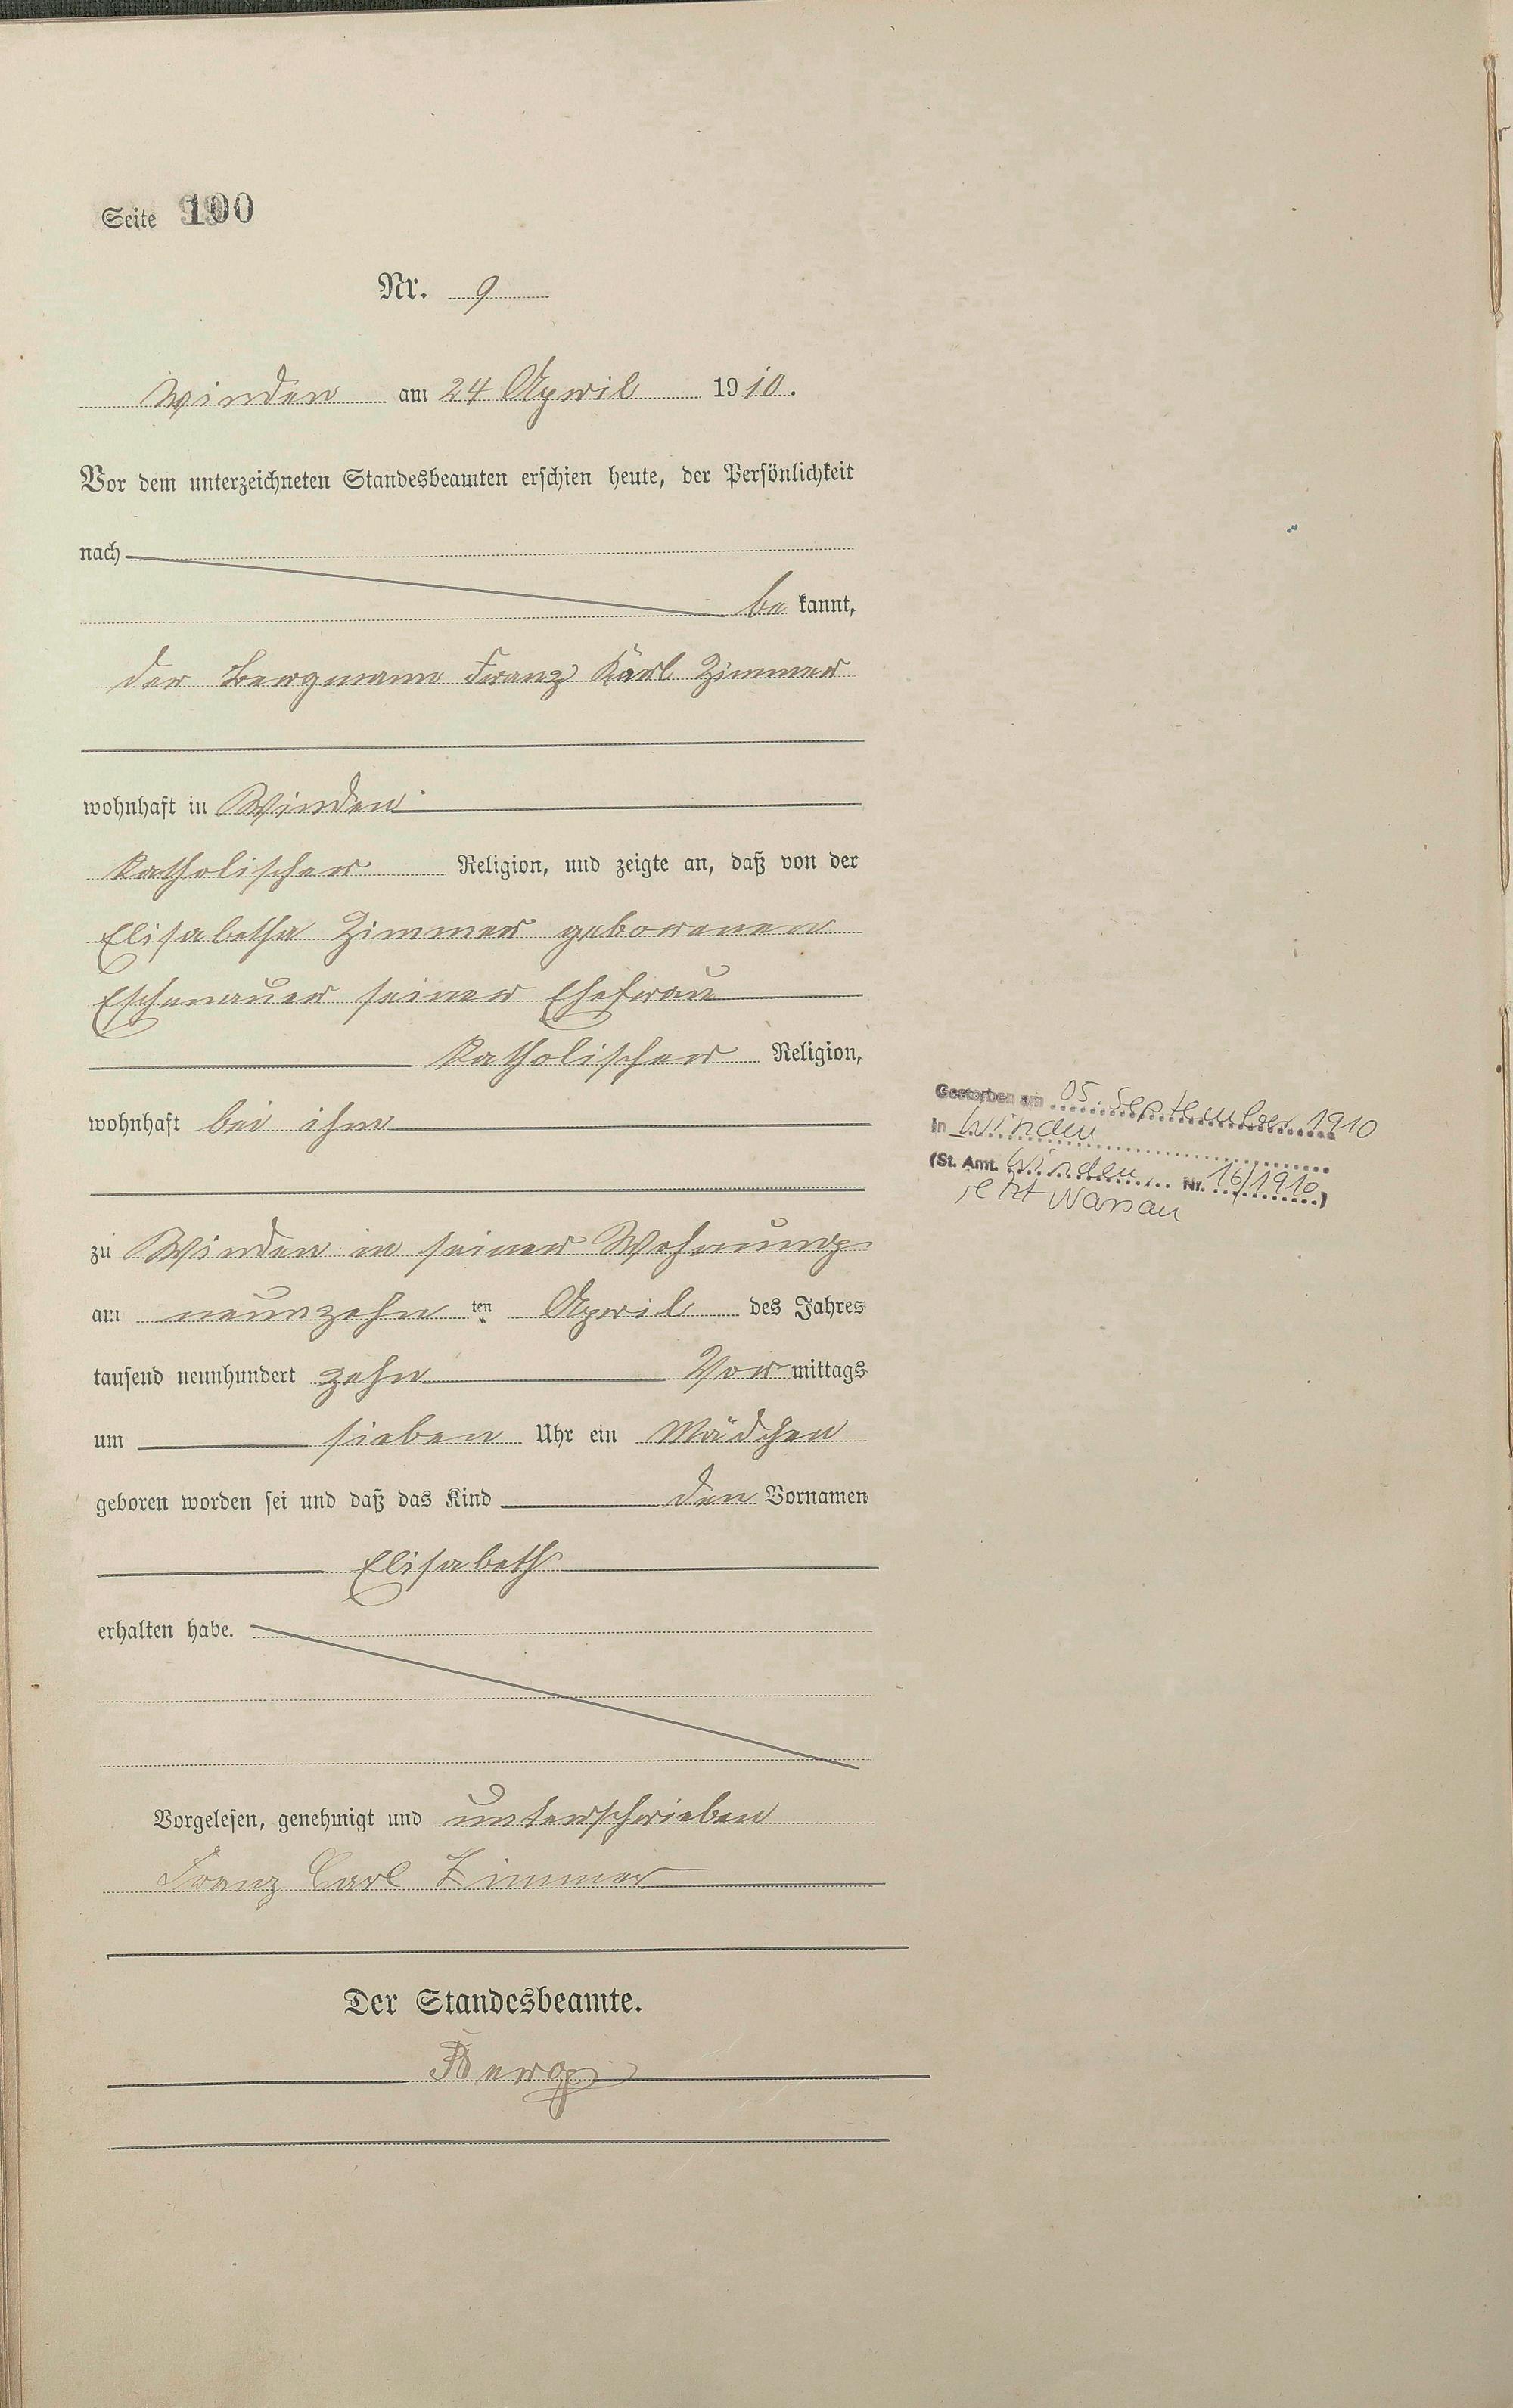 Seite 100
Nr. 9
Winden am 24 April 1910.
Vor dem unterzeichneten Standesbeamten erschien heute, der Persönlichkeit
nach
be kannt,
der Bergmann Franz Karl Zimmer
wohnhaft in Winden
katholischer Religion, und zeigte an, daß von der
Elisabetha Zimmer geborenen
Eschenauer seiner Ehefrau
katholischer Religion,
wohnhaft bei ihm
zu Winden in seiner Wohnung
am neunzehn ten April des Jahres
tausend neunhundert zehn Vor mittags
um sieben Uhr ein Mädchen
geboren worden sei und daß das Kind den Vornamen
Elisabeth
erhalten habe.
Vorgelesen, genehmigt und unterschrieben
Franz Carl Zimmer
Der Standesbeamte.
Berg
Gestorben am 05. September 1910
In Winden
(St. Amt. Winden Nr. 16/1910)
jetzt Nassau